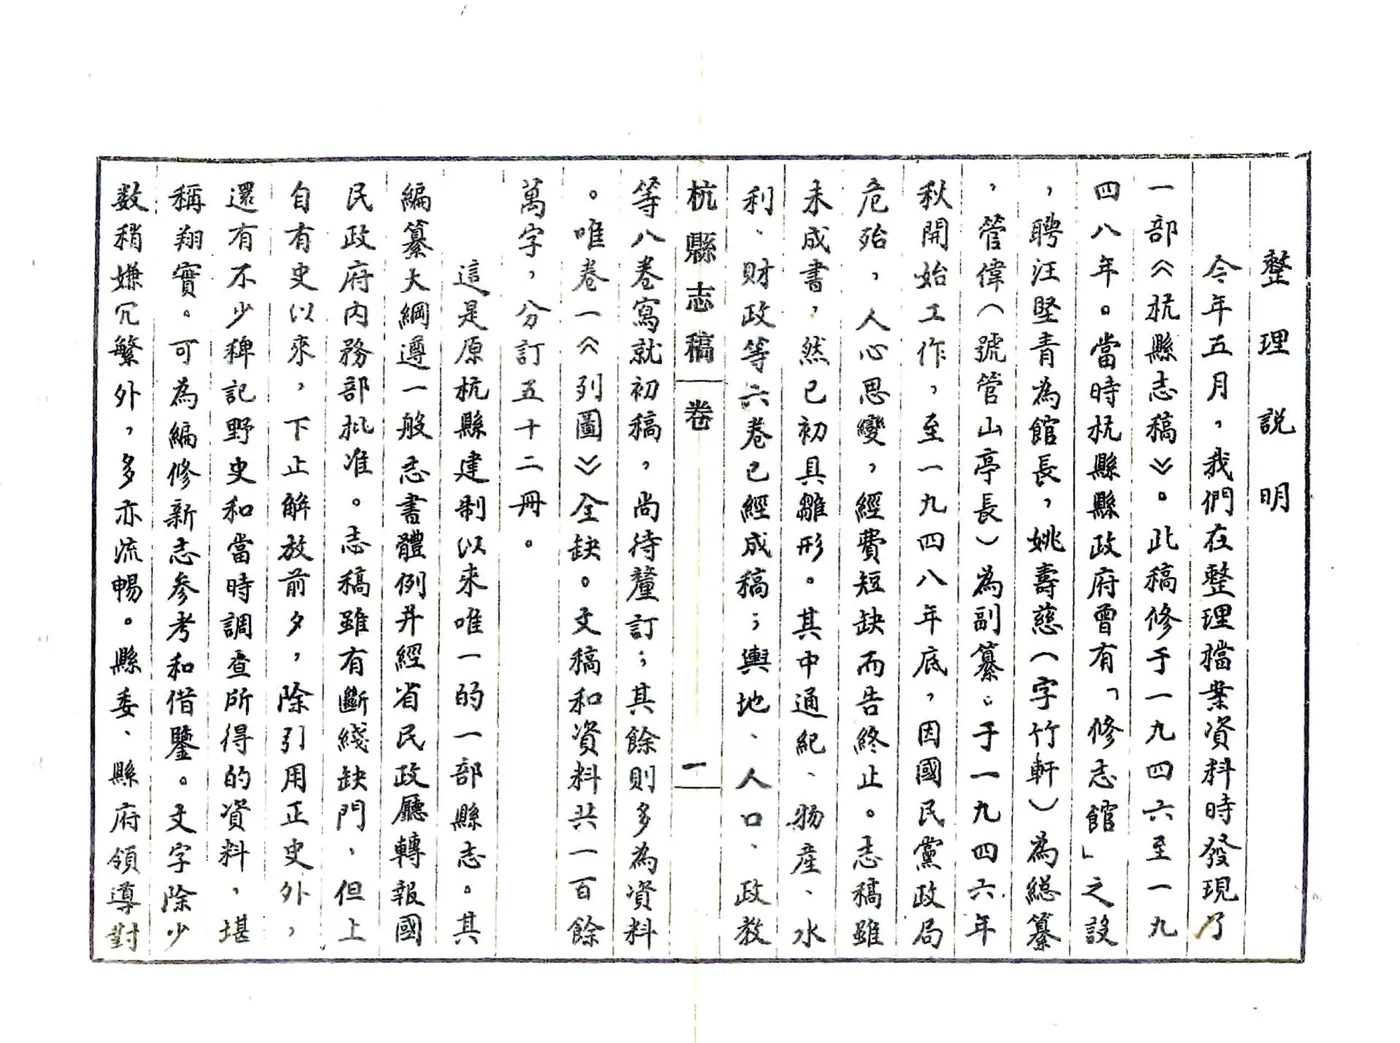 整理説明
今年五月，我們在整理檔案資料時發現了
一部《杭縣志稿》。此稿修于一九四六至一九
四八年。當時杭縣縣政府曾有「修志館」之設
，聘汪堅青為館長，姚壽慈（字竹軒）為總纂
，管偉（號管山亭長）為副纂；于一九四六年
秋開始工作，至一九四八年底，因國民黨政局
危殆，人心思變，經費短缺而告終止。志稿雖
未成書，然已初具雛形。其中通紀、物產、水
利、財政等六卷已經成稿；輿地、人口、政教
杭縣志稿 卷 一
等八卷寫就初稿，尚待釐訂；其餘則多為資料
。唯卷一《列圖》全缺。文稿和資料共一百餘
萬字，分訂五十二冊。
這是原杭縣建制以來唯一的一部縣志。其
編纂大綱遵一般志書體例并經省民政廳轉報國
民政府内務部批准。志稿雖有斷綫缺門，但上
自有史以來，下止解放前夕，除引用正史外，
還有不少稗記野史和當時調查所得的資料，堪
稱翔實。可為編修新志參考和借鑒。文字除少
数稍嫌冗繁外，多亦流暢。縣委、縣府領導對